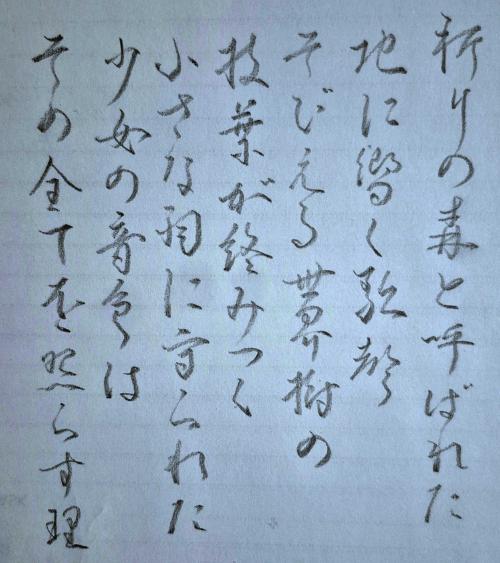 祈りの森と呼ばれた
地に響く歌声
そびえる世界樹の
枝葉が絡みつく
小さな祠に守られた
少女の音色は
その全てを照らす理